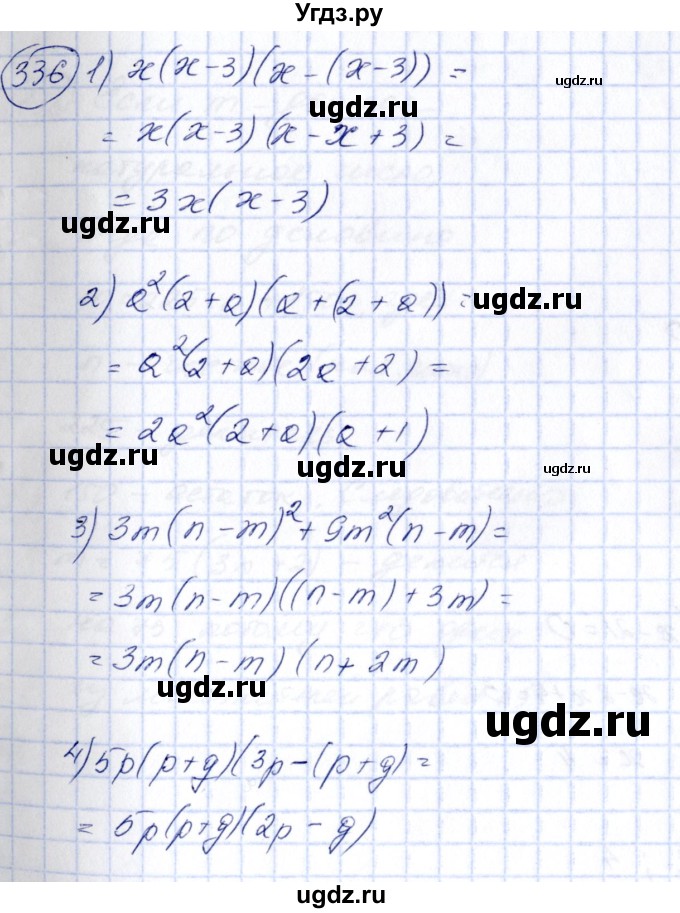 Угдз.ру
336 1) x(x-3)(x-(x-3)) =
= x(x-3)(x-x+3) =
= 3x(x-3)
2) a²(2+a)(a+(2+a)) =
= a²(2+a)(2a+2) =
= 2a²(2+a)(a+1)
3) 3m(n-m)²+9m²(n-m) =
= 3m(n-m)((n-m)+3m) =
= 3m(n-m)(n+2m)
4) 5p(p+g)(3p-(p+g) =
= 5p(p+g)(2p-g)
ugdz.ru
ugdz.ru
ugdz.ru
ugdz.ru
ugdz.ru
ugdz.ru
ugdz.ru
ugdz.ru
ugdz.ru
ugdz.ru
ugdz.ru
ugdz.ru